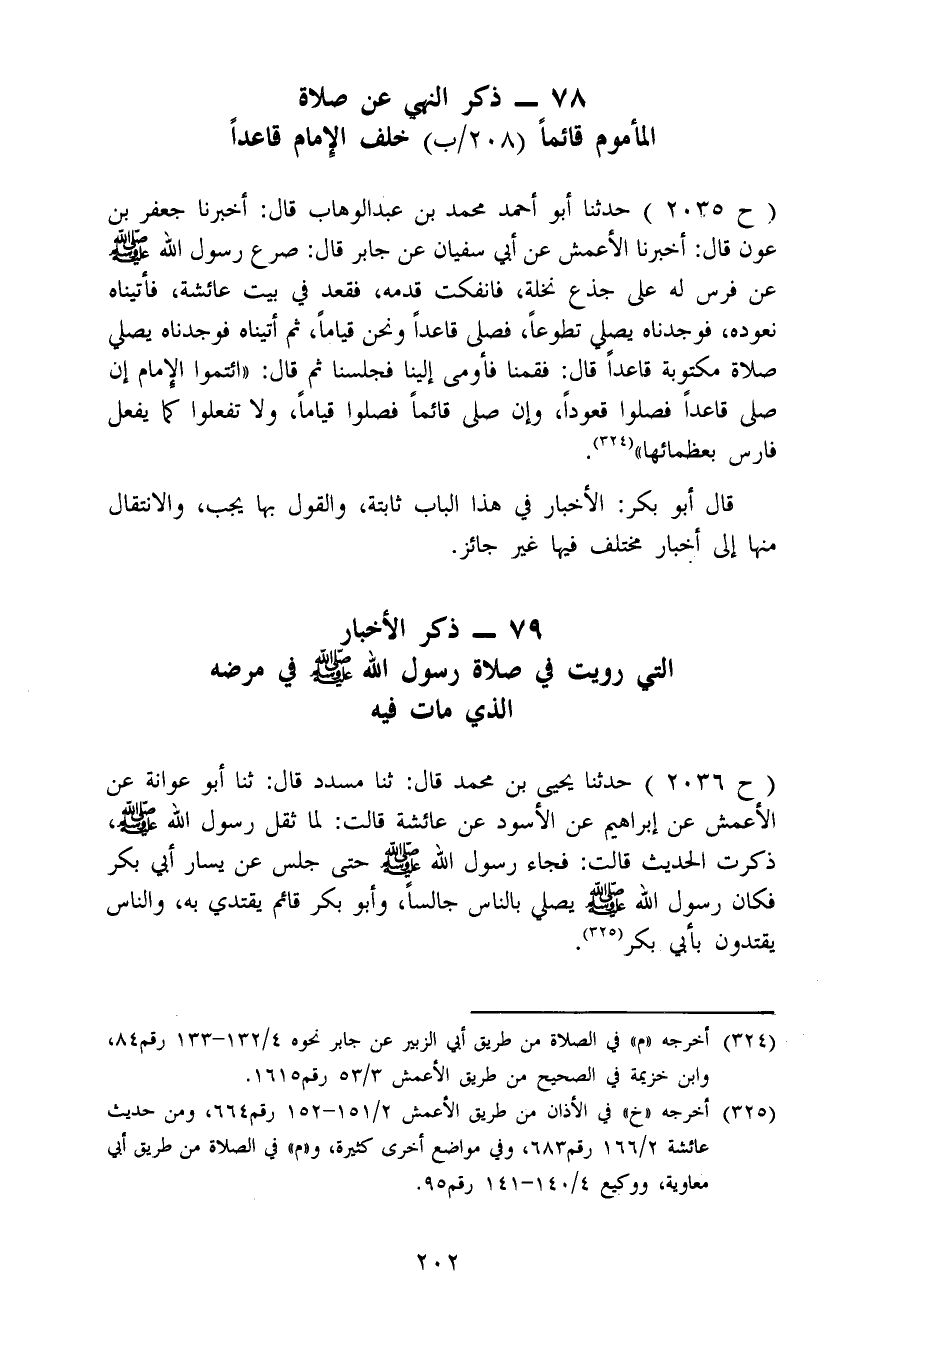 ٧٨ — ذكر النهي عن صلاة
المأموم قائماً (٢٠٨/ب) خلف الإمام قاعداً
( ح ٢٠٣٥ ) حدثنا أبو أحمد محمد بن عبدالوهاب قال: أخبرنا جعفر بن
عون قال: أخبرنا الأعمش عن أبي سفيان عن جابر قال: صرع رسول الله ﷺ
عن فرس له على جذع نخلة، فانفكت قدمه، فقعد في بيت عائشة، فأتيناه
نعوده، فوجدناه يصلي تطوعاً، فصلى قاعداً ونحن قياماً، ثم أتيناه فوجدناه يصلي
صلاة مكتوبة قاعداً قال: فقمنا فأومى إلينا فجلسنا ثم قال: «ائتموا الإمام إن
صلى قاعداً فصلوا قعوداً، وإن صلى قائماً فصلوا قياماً، ولا تفعلوا كما يفعل
فارس بعظمائها»(٣٢٤).
قال أبو بكر: الأخبار في هذا الباب ثابتة، والقول بها يجب، والانتقال
منها إلى أخبار مختلف فيها غير جائز.
٧٩ — ذكر الأخبار
التي رويت في صلاة رسول الله ﷺ في مرضه
الذي مات فيه
( ح ٢٠٣٦ ) حدثنا يحيى بن محمد قال: ثنا مسدد قال: ثنا أبو عوانة عن
الأعمش عن إبراهيم عن الأسود عن عائشة قالت: لما ثقل رسول الله ﷺ،
ذكرت الحديث قالت: فجاء رسول الله ﷺ حتى جلس عن يسار أبي بكر
فكان رسول الله ﷺ يصلي بالناس جالساً، وأبو بكر قائم يقتدي به، والناس
يقتدون بأبي بكر(٣٢٥).
(٣٢٤) أخرجه «م» في الصلاة من طريق أبي الزبير عن جابر نحوه ١٣٢/٤–١٣٣ رقم٨٤،
وابن خزيمة في الصحيح من طريق الأعمش ٥٣/٣ رقم١٦١٥.
(٣٢٥) أخرجه «خ» في الأذان من طريق الأعمش ١٥١/٢–١٥٢ رقم٦٦٤، ومن حديث
عائشة ١٦٦/٢ رقم٦٨٣، وفي مواضع أخرى كثيرة، و«م» في الصلاة من طريق أبي
معاوية، ووكيع ١٤٠/٤–١٤١ رقم٩٥.
٢٠٢